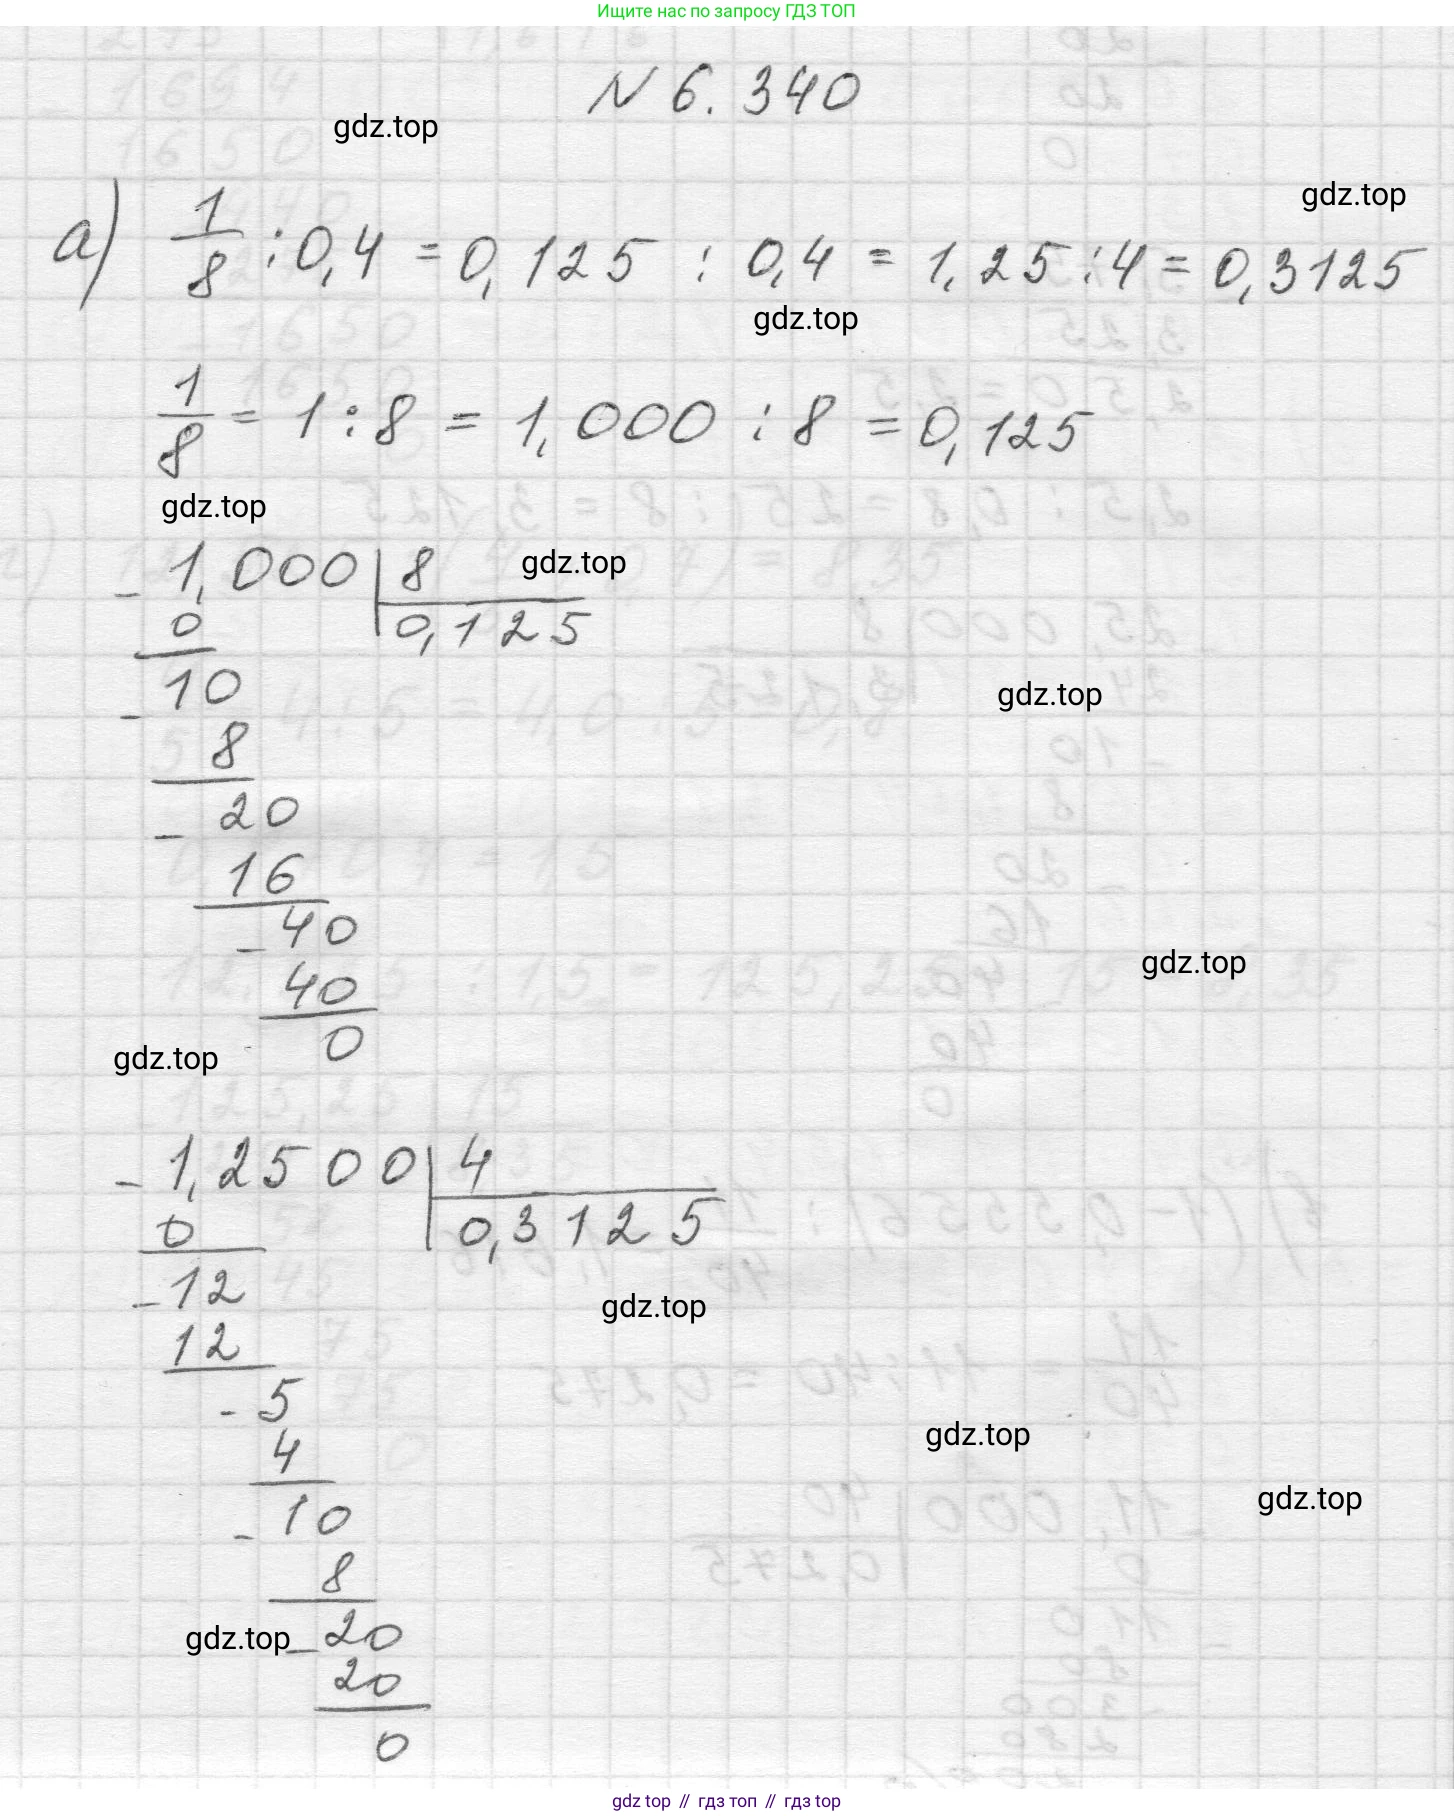 Ищите нас по запросу ГДЗ ТОП
N 6.340
gdz.top
gdz.top
а) 1/8 : 0,4 = 0,125 : 0,4 = 1,25 : 4 = 0,3125
gdz.top
1/8 = 1 : 8 = 1,000 : 8 = 0,125
gdz.top
gdz.top
- 1,000 | 8
0 | 0,125
- 10
gdz.top
8
- 20
16
- 40
gdz.top
40
0
gdz.top
- 1,2500 | 4
0 | 0,3125
- 12
gdz.top
12
- 5
gdz.top
4
- 10
gdz.top
8
gdz.top
- 20
20
0
gdz top // гдз топ // гдз top